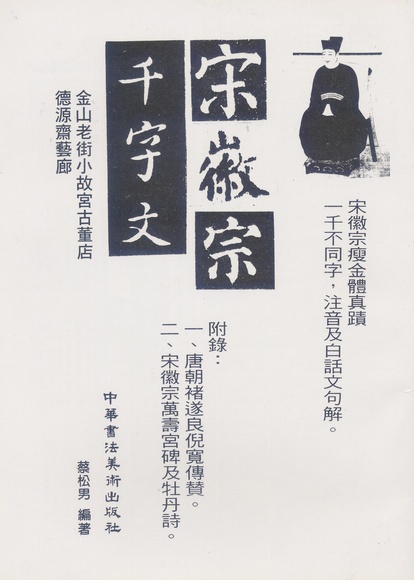 宋徽宗
千字文
宋徽宗瘦金體真蹟
一千不同字，注音及白話文句解。
附錄：
一、唐朝褚遂良倪寬傳贊。
二、宋徽宗萬壽宮碑及牡丹詩。
金山老街小故宮古董店
德源齋藝廊
中華書法美術出版社
蔡松男 編著